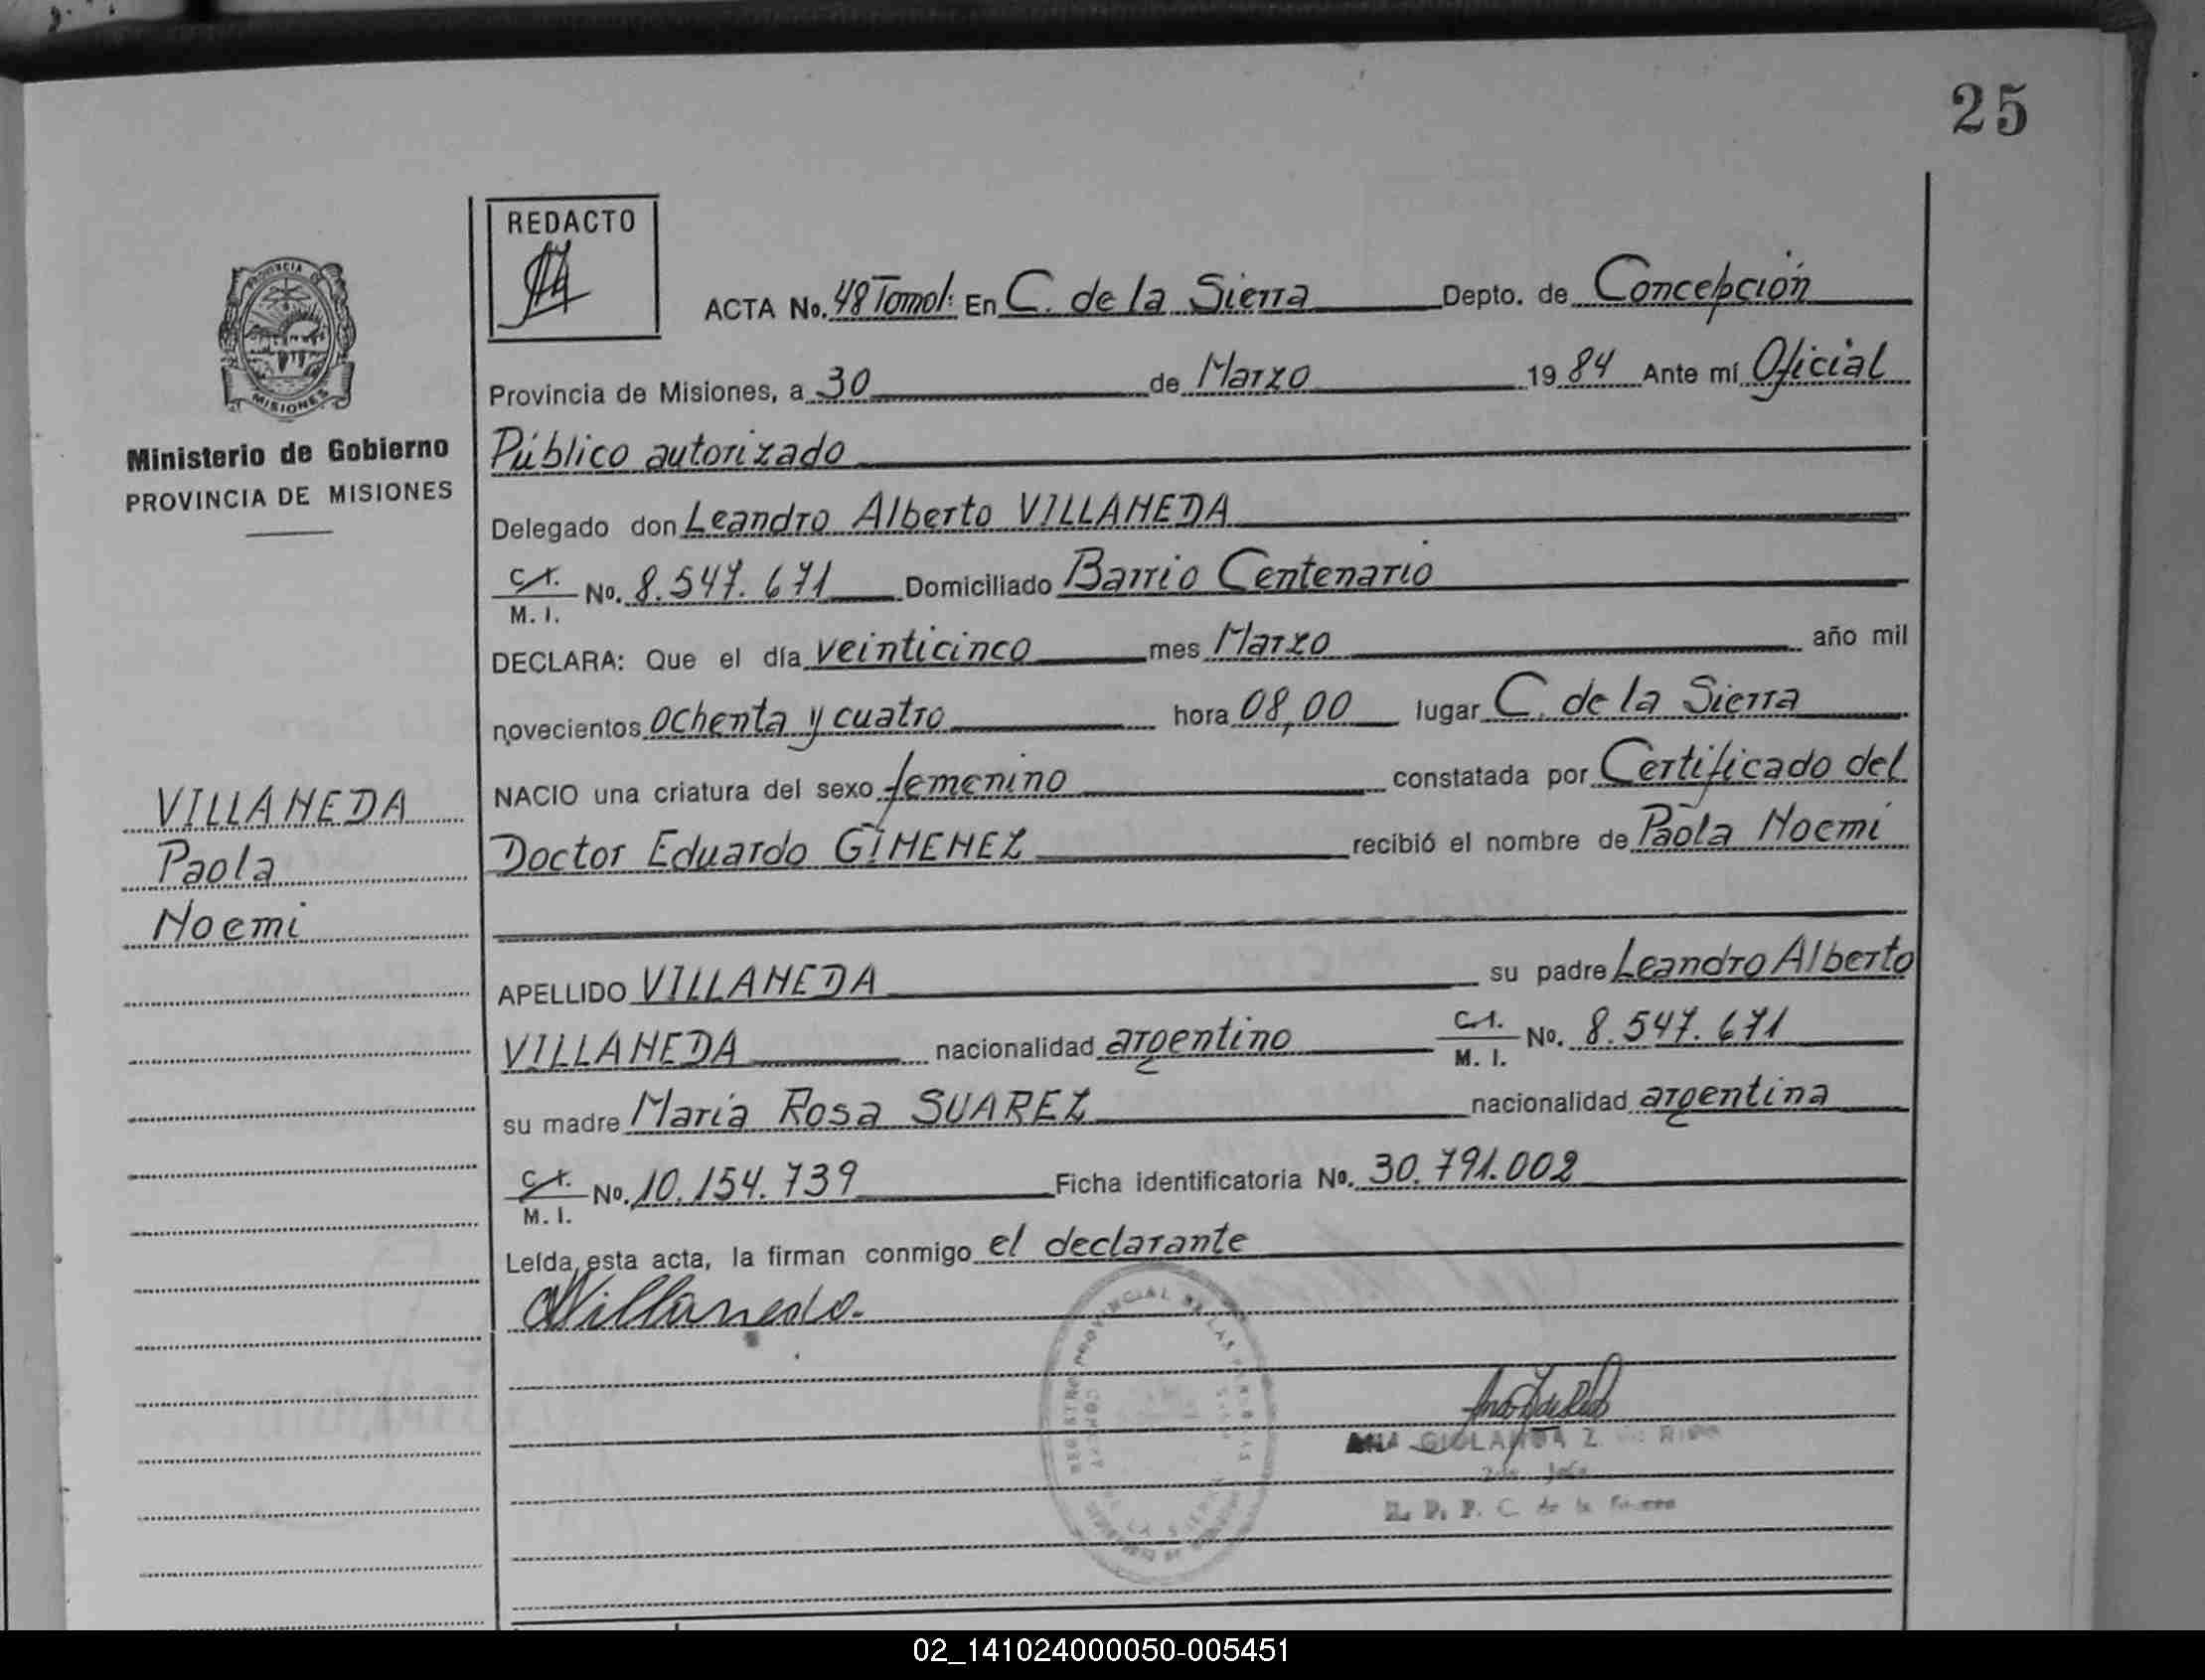 25
REDACTO
ACTA No. 48 Tomo I: En C. de la Sierra Depto. de Concepción
Provincia de Misiones, a 30 de Marzo 1984 Ante mí Oficial
Ministerio de Gobierno
PROVINCIA DE MISIONES
Público autorizado
Delegado don Leandro Alberto VILLANEDA
C.I. M. I. No. 8.547.671 Domiciliado Barrio Centenario
DECLARA: Que el día veinticinco mes Marzo año mil
novecientos ochenta y cuatro hora 08,00 lugar C. de la Sierra
NACIO una criatura del sexo femenino constatada por Certificado del
Doctor Eduardo GIMENEZ recibió el nombre de Paola Noemi
VILLANEDA
Paola
Noemi
APELLIDO VILLANEDA su padre Leandro Alberto
VILLANEDA nacionalidad argentino C.I. M. I. No. 8.547.671
su madre María Rosa SUAREZ nacionalidad argentina
C.I. M. I. No. 10.154.739 Ficha identificatoria No. 30.791.002
Leída esta acta, la firman conmigo el declarante
Villaneda.
REGISTRO PROVINCIAL DE LAS PERSONAS
ANA GIOLANDA Z.
R. P. P. C. de la Sierra
PROVINCIA DE
MISIONES
02_141024000050-005451